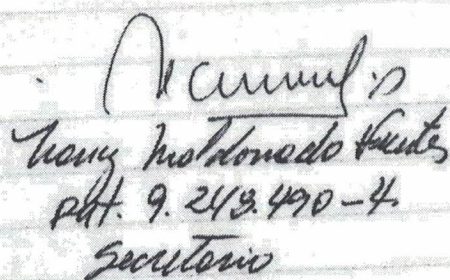 Maldonado Fuentes
Rut. 9.248.490-4.
Secretario